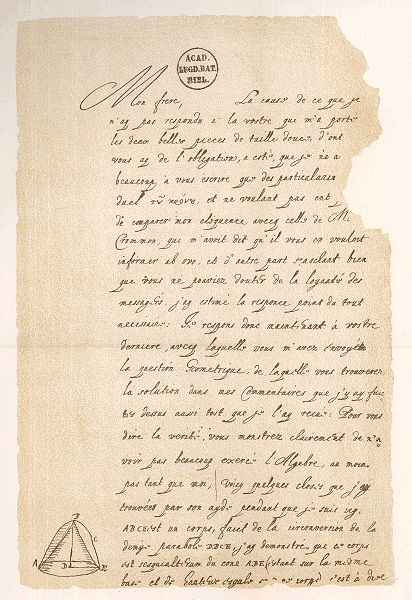 ACAD.
LUGD. BAT.
BIBL.
Mon frere, La cause de ce que je
n'ay pas respondu a la vostre qui m'a porté
les deux belles pieces de taille douce, d'ont
vous ay de l'obligation, a esté, que je ne a
beaucoup a vous escrire que des particularitez
duel et ne voulant pas
de comparer mon eloquence avecq celle de M.
Crommon, qui m'avoit dit qu'il vous en vouloit
informer ab ovo, et d'autre part scachant bien
que vous ne pouviez douter de la loyauté des
messagers, j'ay estimé la response point du tout
necessaire. Je respons donc maintenant à vostre
derniere, avecq laquelle vous m'avez envoyé
la question Geometrique, de laquelle vous trouverez
la solution dans mes Commentaires que j'y ay fait
dessus aussi tost que je l'ay receue. Pour vous
dire la verité, vous monstrez clairement de n'a
voir pas beaucoup exercé l'Algebre, au moins
pas tant que moy, Voicy quelques choses que j'ay
trouvées par son ayde pendant que je suis icy.
ABCH est un corps, faict de la circonversion de la
demye parabole DBCH, j'ay demonstré, que ce corps
est sesquialterum du cone ABE estant sur la mesme
base et de haulteur egale a ce corps c'est à dire
B
C
A
D